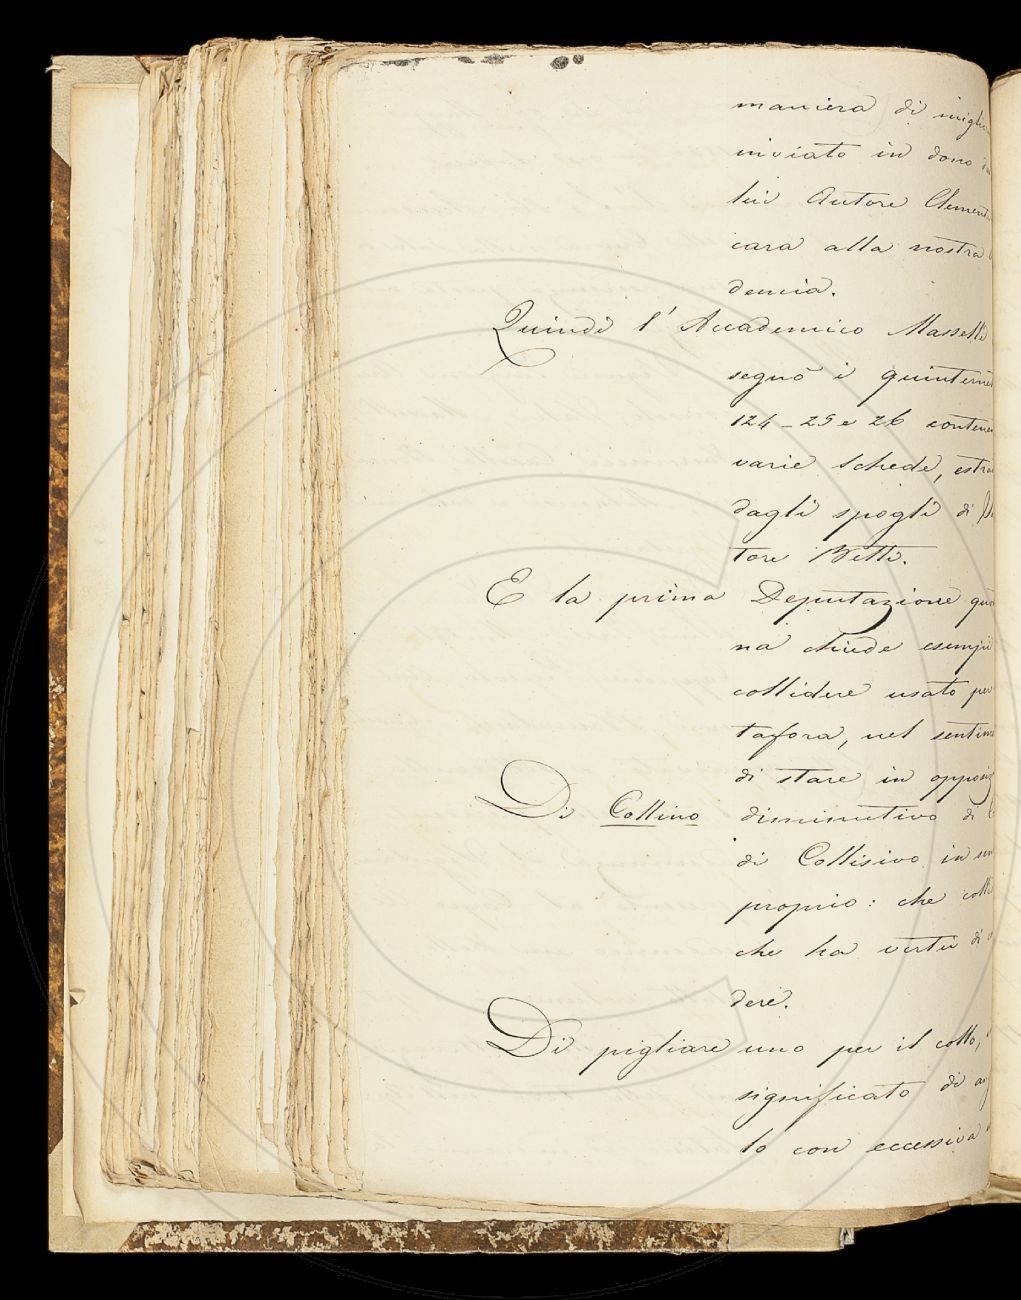 maniera di migli
inviato in dono da
lui Autore Clement
cara alla nostra
demia.
Quindi l'Accademico Masselli
segnò i quinterne
124-25 e 26 contene
varie schede, estra
dagli spogli di
tore Betti.
E la prima Deputazione
na chiede esempi
collidere usato per
tafora, nel sentim
di stare in opposiz
Di Collino diminutivo di
di Collisivo in sen
proprio: che
che ha virtù di
dere.
Di pigliare uno per il collo,
significato di
lo con eccessiva